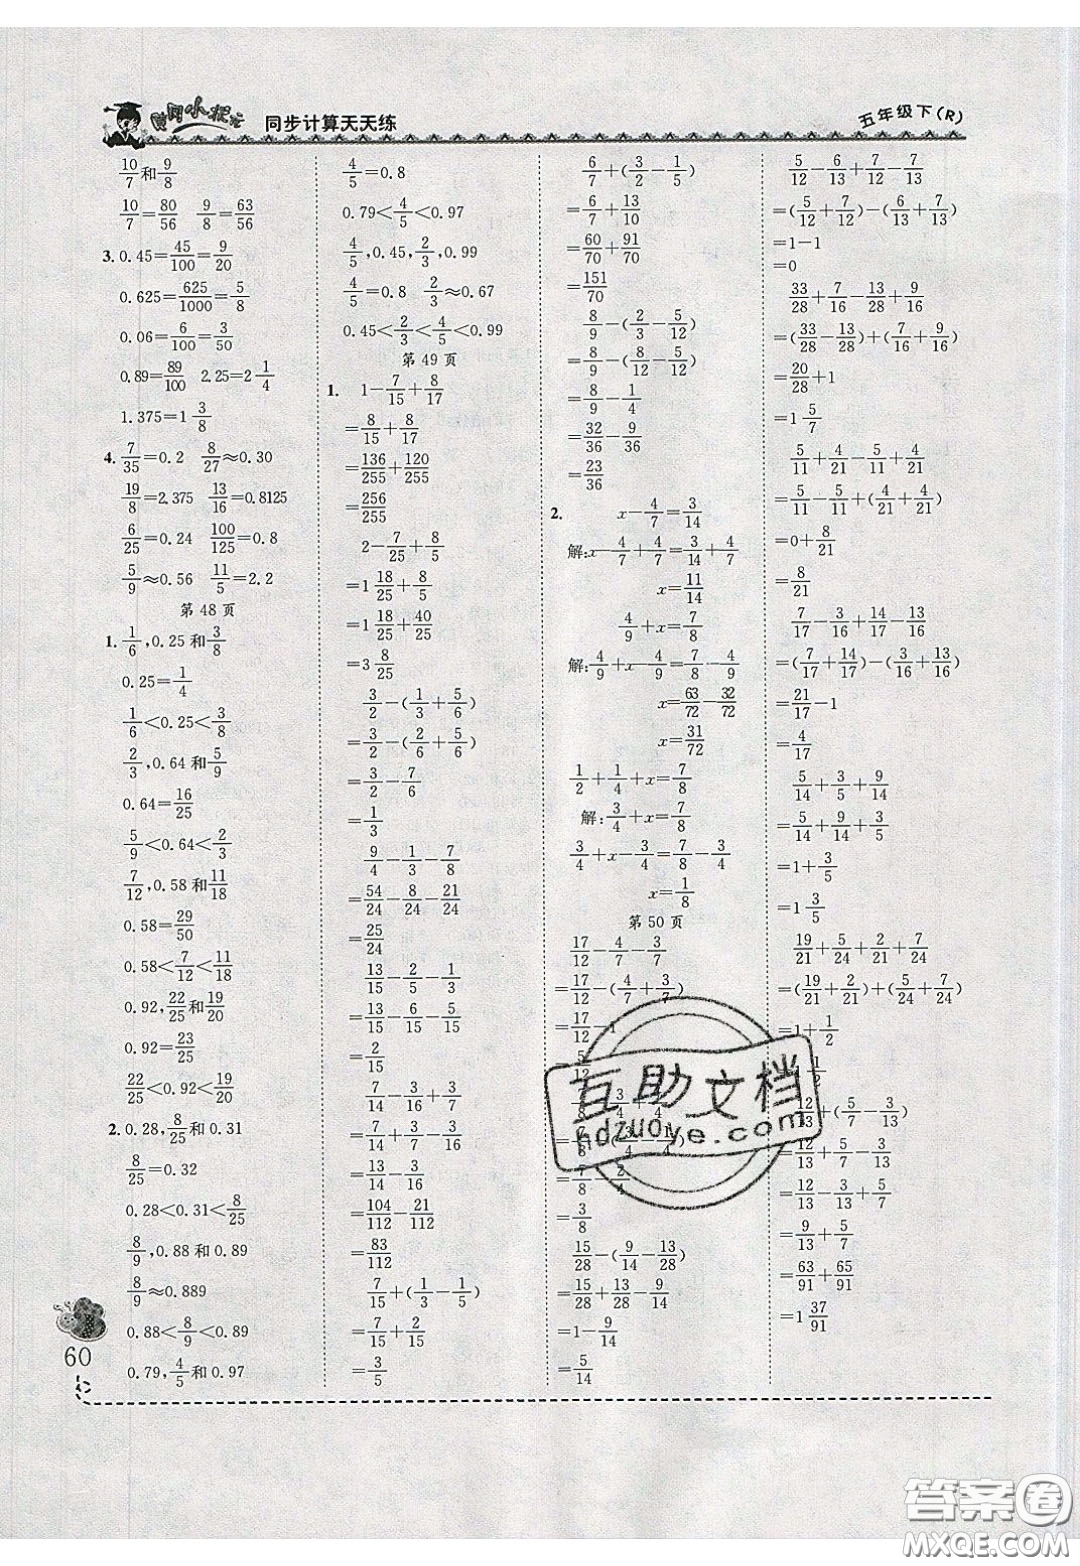 黄冈小状元 同步计算天天练 五年级下(R)
10/7和9/8
10/7=80/56 9/8=63/56
3. 0.45=45/100=9/20
0.625=625/1000=5/8
0.06=6/100=3/50
0.89=89/100 2.25=2 1/4
1.375=1 3/8
4. 7/35=0.2 8/27≈0.30
19/8=2.375 13/16=0.8125
6/25=0.24 100/125=0.8
5/9≈0.56 11/5=2.2
第48页
1. 1/6,0.25和3/8
0.25=1/4
1/6<0.25<3/8
2/3,0.64和5/9
0.64=16/25
5/9<0.64<2/3
7/12,0.58和11/18
0.58=29/50
0.58<7/12<11/18
0.92,22/25和19/20
0.92=23/25
22/25<0.92<19/20
2. 0.28,8/25和0.31
8/25=0.32
0.28<0.31<8/25
8/9,0.88和0.89
8/9≈0.889
0.88<8/9<0.89
0.79,4/5和0.97
4/5=0.8
0.79<4/5<0.97
4/5,0.45,2/3,0.99
4/5=0.8 2/3≈0.67
0.45<2/3<4/5<0.99
第49页
1. 1-7/15+8/17
=8/15+8/17
=136/255+120/255
=256/255
2-7/25+8/5
=1 18/25+8/5
=1 18/25+40/25
=3 8/25
3/2-(1/3+5/6)
=3/2-(2/6+5/6)
=3/2-7/6
=1/3
9/4-1/3-7/8
=54/24-8/24-21/24
=25/24
13/15-2/5-1/3
=13/15-6/15-5/15
=2/15
7/14-3/16+3/7
=7/14+3/7-3/16
=13/14-3/16
=104/112-21/112
=83/112
7/15+(1/3-1/5)
=7/15+2/15
=3/5
6/7+(3/2-1/5)
=6/7+13/10
=60/70+91/70
=151/70
8/9-(2/3-5/12)
=8/9-(8/12-5/12)
=8/9-1/4
=32/36-9/36
=23/36
2. x-4/7=3/14
解:x-4/7+4/7=3/14+4/7
x=11/14
4/9+x=7/8
解:4/9+x-4/9=7/8-4/9
x=63/72-32/72
x=31/72
1/2+1/4+x=7/8
解:3/4+x=7/8
3/4+x-3/4=7/8-3/4
x=1/8
第50页
17/12-4/7-3/7
=17/12-(4/7+3/7)
=17/12-1
=7/8-2/4
=3/8
15/28-(9/14-13/28)
=15/28+13/28-9/14
=1-9/14
=5/14
5/12-6/13+7/12-7/13
=(5/12+7/12)-(6/13+7/13)
=1-1
=0
33/28+7/16-13/28+9/16
=(33/28-13/28)+(7/16+9/16)
=20/28+1
=1 5/7
5/11+4/21-5/11+4/21
=5/11-5/11+(4/21+4/21)
=0+8/21
=8/21
7/17-3/16+14/17-13/16
=(7/17+14/17)-(3/16+13/16)
=21/17-1
=4/17
5/14+3/5+9/14
=5/14+9/14+3/5
=1+3/5
=1 3/5
19/21+5/24+2/21+7/24
=(19/21+2/21)+(5/24+7/24)
=1+1/2
12/13+(5/7-3/13)
=12/13+5/7-3/13
=12/13-3/13+5/7
=9/13+5/7
=63/91+65/91
=1 37/91
60
互助文档
hdzuoye.com
答案圈
MXQE.COM